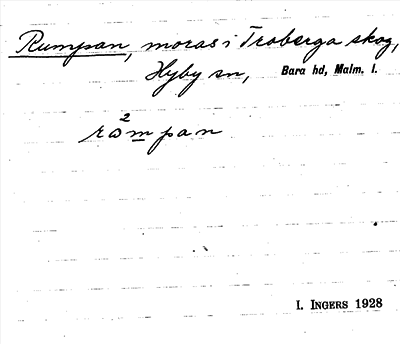 Rumpan, moras i Troberga skog,
Hyby sn, Bara hd, Malm. l.
rω²m̲pan
I. INGERS 1928